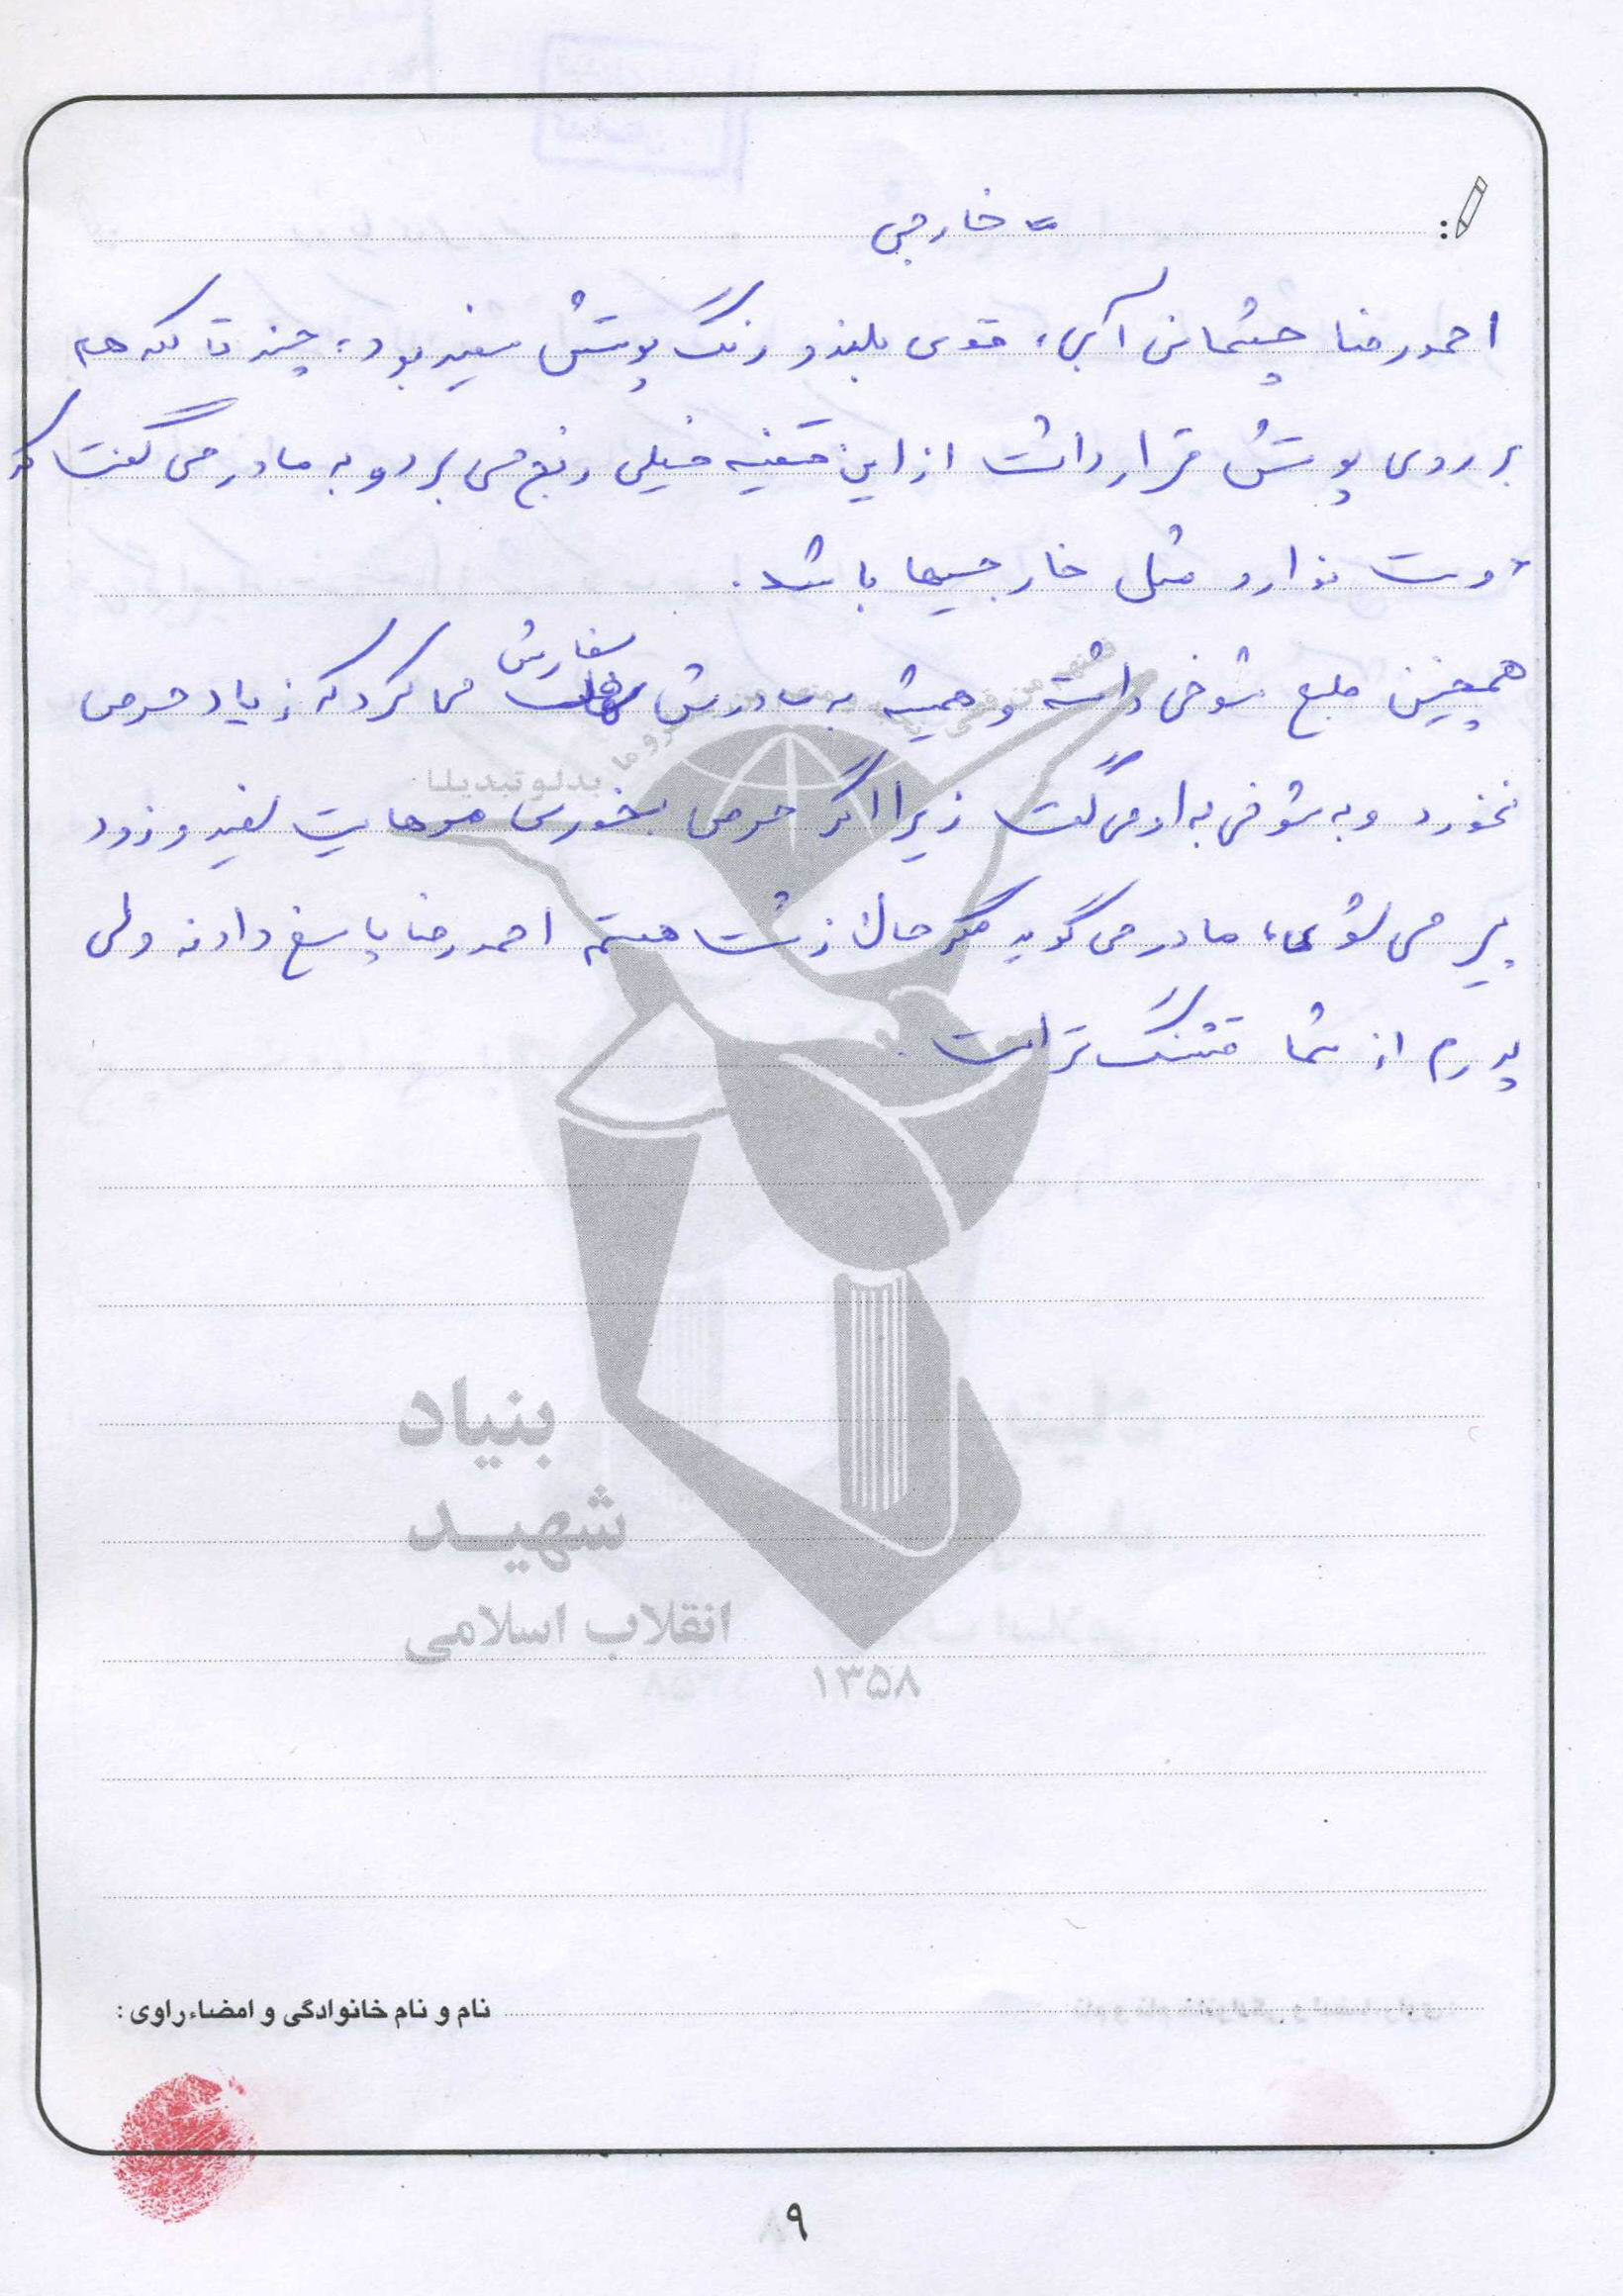 = خارجی
احمدرضا چشمانی آبی، قدی بلند و رنگ پوستش سفید بود، چند تا لکه هم
بر روی پوستش قرار داشت از این قضیه خیلی رنج می برد و به مادر می گفت که
دوست ندارد مثل خارجیها باشد.
همچنین طبع شوخی داشته و همیشه به مادرش سفارش می کرد که زیاد حرص
نخورد و به شوخی به او می گفت زیرا اگر حرص بخوری موهایت سفید و زود
پیر می شوی، مادر می گوید مگر حالا زشت هستم احمدرضا پاسخ داد نه ولی
پدرم از شما قشنگ تر است.
فمنهم من قضی نحبه و منهم من ینتظر و ما بدلوا تبدیلا
بنیاد
شهید
انقلاب اسلامی
۱۳۵۸
نام و نام خانوادگی و امضاء راوی:
۹